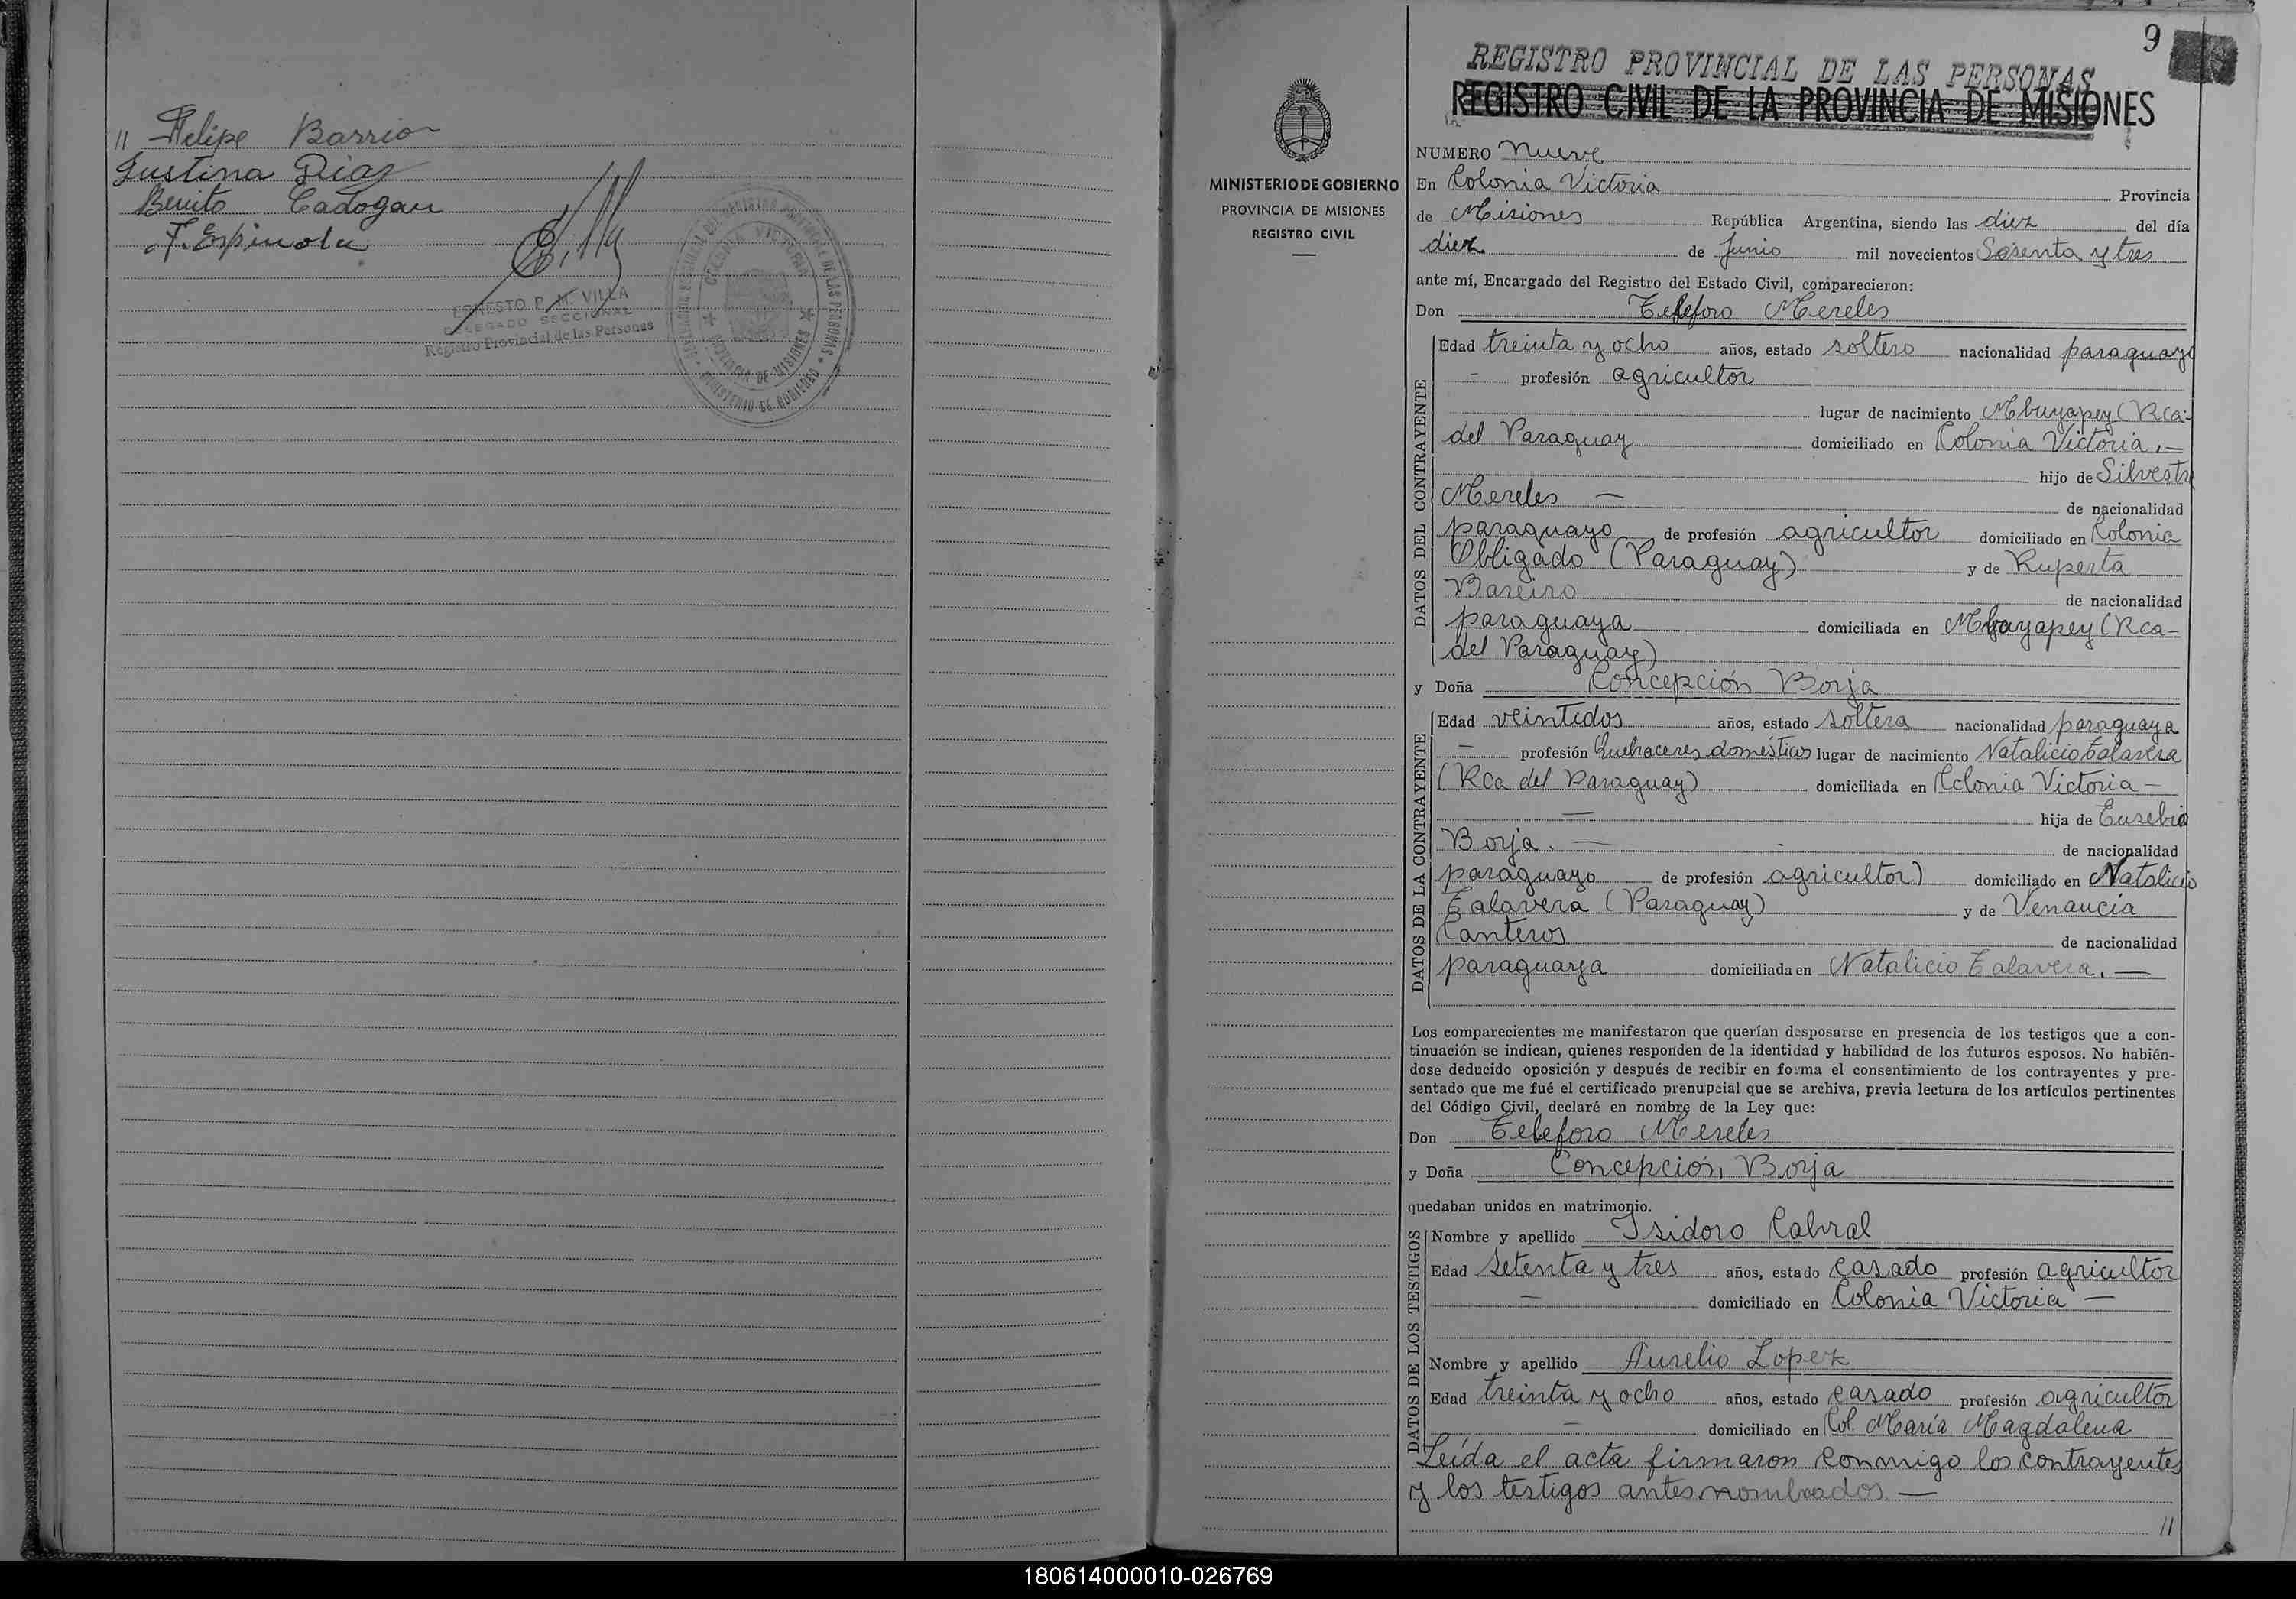 // Felipe Barrios
Justina Diaz
Benito Cadogan
F. Espinola
ERNESTO P. M. VILLA
DELEGADO SECCIONAL
Registro Provincial de las Personas
COLONIA VICTORIA
PROVINCIA DE MISIONES
MINISTERIO DE GOBIERNO
9
REGISTRO PROVINCIAL DE LAS PERSONAS
REGISTRO CIVIL DE LA PROVINCIA DE MISIONES
MINISTERIO DE GOBIERNO
PROVINCIA DE MISIONES
REGISTRO CIVIL
NUMERO nueve
En Colonia Victoria Provincia
de Misiones República Argentina, siendo las diez del día
diez de Junio mil novecientos Sesenta y tres
ante mí, Encargado del Registro del Estado Civil, comparecieron:
Don Teleforo Mereles
DATOS DEL CONTRAYENTE
Edad treinta y ocho años, estado soltero nacionalidad paraguayo
— profesión agricultor
lugar de nacimiento Mbuyapey (Rca-
del Paraguay domiciliado en Colonia Victoria.—
hijo de Silvestre
Mereles — de nacionalidad
paraguayo de profesión agricultor domiciliado en Colonia
Obligado (Paraguay) y de Ruperta
Bareiro de nacionalidad
paraguaya domiciliada en Mbuyapey (Rca-
del Paraguay)
y Doña Concepción Borja
DATOS DE LA CONTRAYENTE
Edad veintidos años, estado soltera nacionalidad paraguaya
— profesión Quehaceres domésticos lugar de nacimiento Natalicio Talavera
(Rca del Paraguay) domiciliada en Colonia Victoria —
— hija de Eusebio
Borja. — de nacionalidad
paraguayo de profesión agricultor) domiciliado en Natalicio
Talavera (Paraguay) y de Venancia
Canteros de nacionalidad
paraguaya domiciliada en Natalicio Talavera. —
Los comparecientes me manifestaron que querían desposarse en presencia de los testigos que a con-
tinuación se indican, quienes responden de la identidad y habilidad de los futuros esposos. No habién-
dose deducido oposición y después de recibir en forma el consentimiento de los contrayentes y pre-
sentado que me fué el certificado prenupcial que se archiva, previa lectura de los artículos pertinentes
del Código Civil, declaré en nombre de la Ley que:
Don Teleforo Mereles
y Doña Concepción Borja
quedaban unidos en matrimonio.
DATOS DE LOS TESTIGOS
Nombre y apellido Isidoro Cabral
Edad Setenta y tres años, estado casado profesión agricultor
— domiciliado en Colonia Victoria —
Nombre y apellido Aurelio Lopez
Edad treinta y ocho años, estado casado profesión agricultor
— domiciliado en Col. María Magdalena
Leída el acta firmaron conmigo los contrayentes
y los testigos antes nombrados. —
//
180614000010-026769